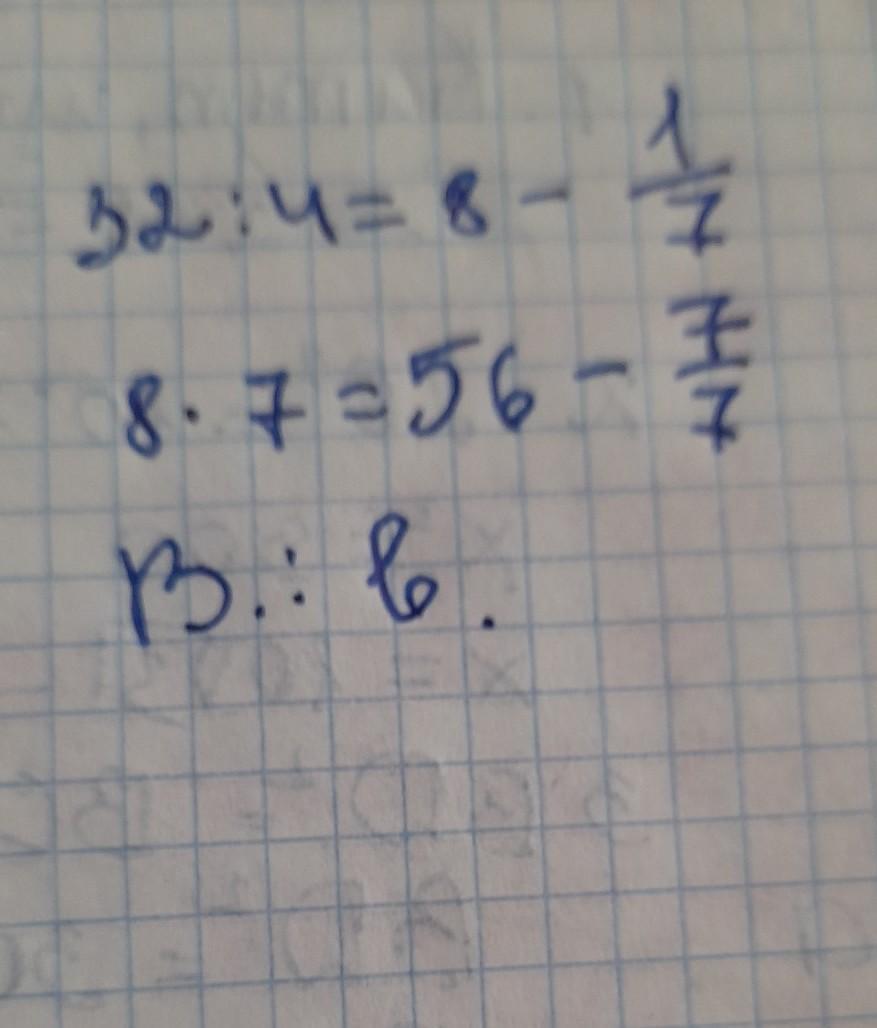 32 : 4 = 8 - 1/7
8 · 7 = 56 - 7/7
В.: в.